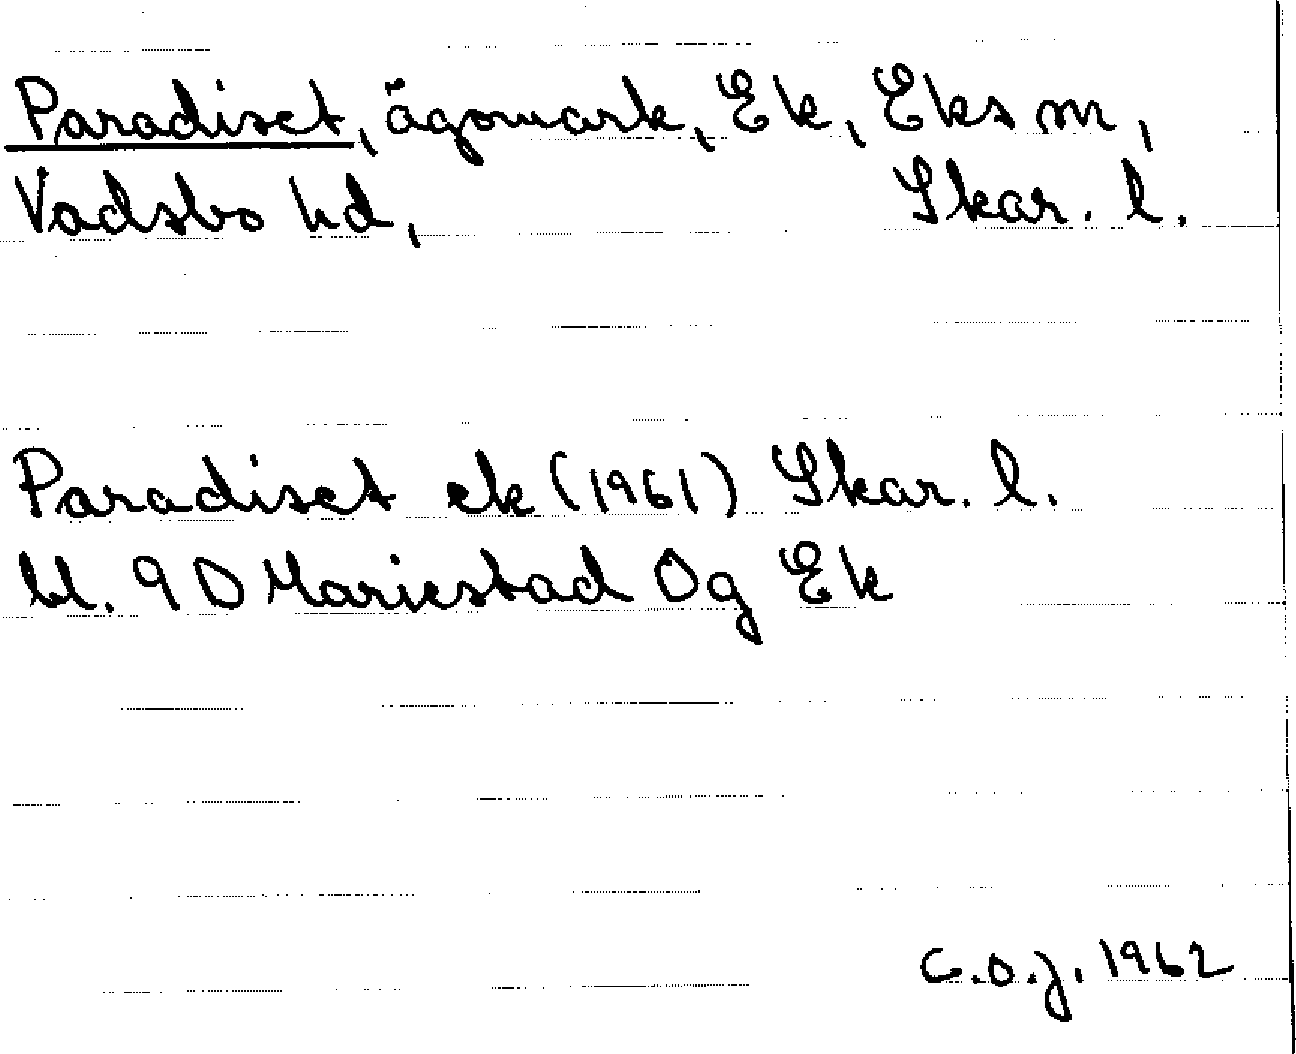 Paradiset, ägomark, Ek, Eks sn,
Vadsbo hd, Skar. l.
Paradiset ek (1961) Skar. l.
bl. 9D Mariestad Og Ek
C.O.J. 1962